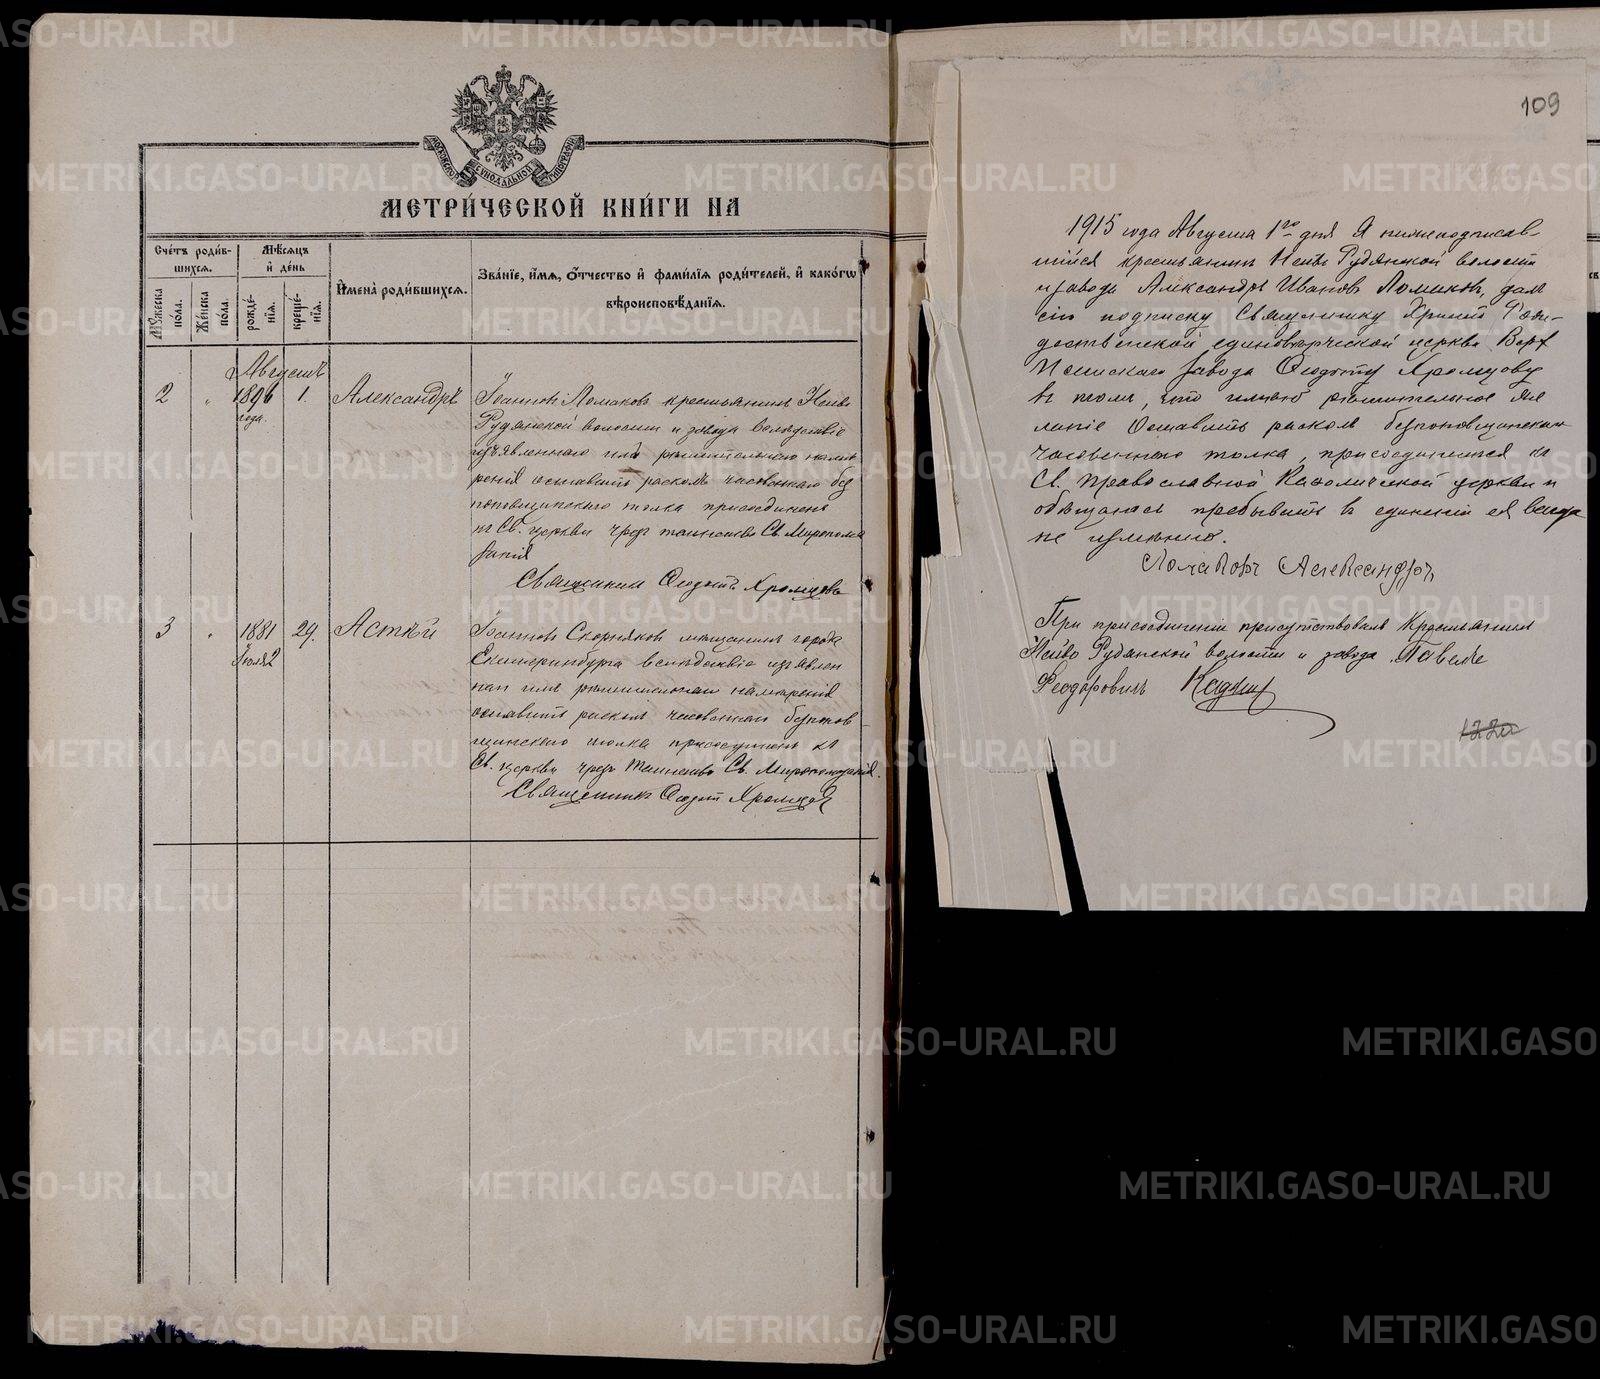 МЕТРИ́ЧЕСКОЙ КНИ́ГИ НА
МОСКОВСКОЙ СѴНОДАЛЬНОЙ ТИПОГРАФІИ
Сче́тъ роди́вшихсѧ.
Мꙋ́жеска пола.
Же́нска пола.
Мѣ́сѧцъ и҆ де́нь
рожде́нїѧ.
креще́нїѧ.
И҆мена̀ роди́вшихсѧ.
Зва́нїе, и҆́мѧ, ѻ҆́тчество и҆ фами́лїѧ роди́телей, и҆ како́гѡ вѣроисповѣ́данїѧ.
Августъ
2 " 1896 года. 1. Александръ
Іоанновъ Ломаковъ крестьянинъ Нейво
Рудянской волости и завода вслѣдствіе
изъявленнаго имъ рѣшительнаго намѣ
ренія оставить расколъ часовеннаго без
поповщинскаго толка присоединенъ
къ Св. церкви чрезъ таинство Св. Миропома
занія
Священникъ Ѳеодотъ Хромцовъ
3 " 1881 Іюля 2 29. Астѣй
Іоанновъ Скорняковъ мѣщанинъ города
Екатеринбурга вслѣдствіе изъявлен
наго имъ рѣшительнаго намѣренія
оставить расколъ часовеннаго безпопов
щинскаго толка присоединенъ къ
Св. церкви чрезъ Таинство Св. Миропомазанія.
Священникъ Ѳеодотъ Хромцовъ
109
1915 года Августа 1го дня Я нижеподписав-
шійся крестьянинъ Нейво Рудянской волости
и завода Александръ Ивановъ Ломаковъ, далъ
сію подписку Священнику Христо Рож-
дественской единовѣрческой церкви Верх
Нейвинскаго завода Ѳеодоту Хромцову
въ томъ, что имѣю рѣшительное же
ланіе Оставить расколъ безпоповщинскаго
часовеннаго толка, присоединиться къ
Св. Православной Каѳолической церкви и
обѣщаюсь пребывать въ единеніи ея всегда
не измѣнно.
Ломаковъ Александръ
При присоединеніи присутствовалъ Крестьянинъ
Нейво Рудянской волости и завода Павелъ
Феодоровичъ Кадкин
METRIKI.GASO-URAL.RU